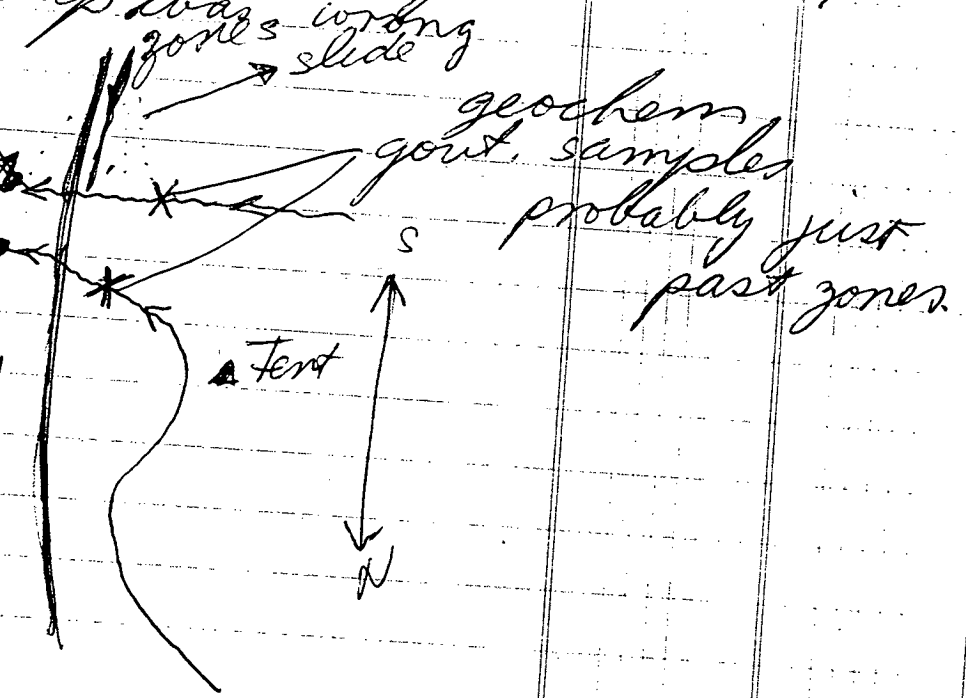 was wrong
zones
slide
geochem
govt. samples
probably just
past zones.
S
Tent
N